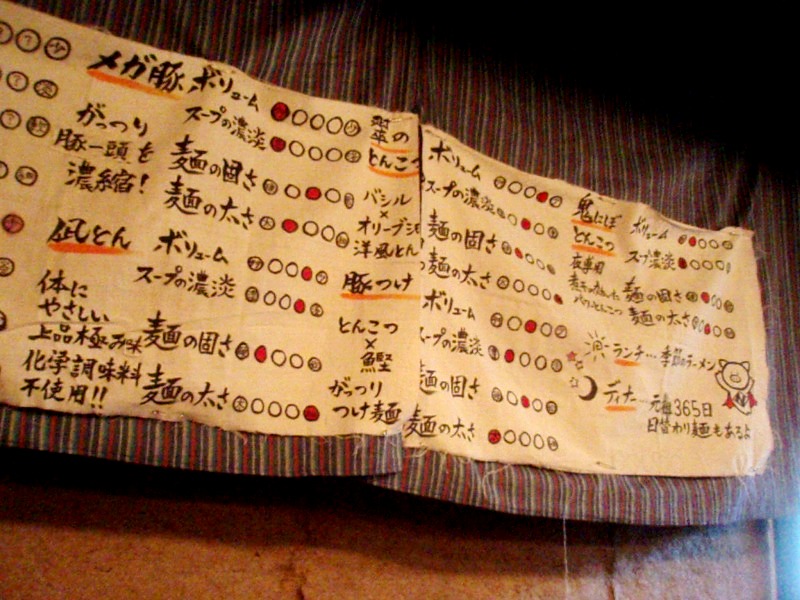 メガ豚
がっつり
豚一頭を
濃縮!
ボリューム
スープの濃淡
麺の固さ
麺の太さ
凪とん
体に
やさしい
上品極み味
化学調味料
不使用!!
ボリューム
スープの濃淡
麺の固さ
麺の太さ
翠の
とんこつ
バジル
×
オリーブ
洋風とん
ボリューム
スープの濃淡
麺の固さ
麺の太さ
豚つけ
とんこつ
×
鰹
がっつり
つけ麺
ボリューム
スープの濃淡
麺の固さ
麺の太さ
鬼にぼ
とんこつ
夜専用
ボリューム
スープ濃淡
麺の固さ
麺の太さ
ランチ…季節のラーメン
ディナー…元旦365日
日替わり麺もあるよ